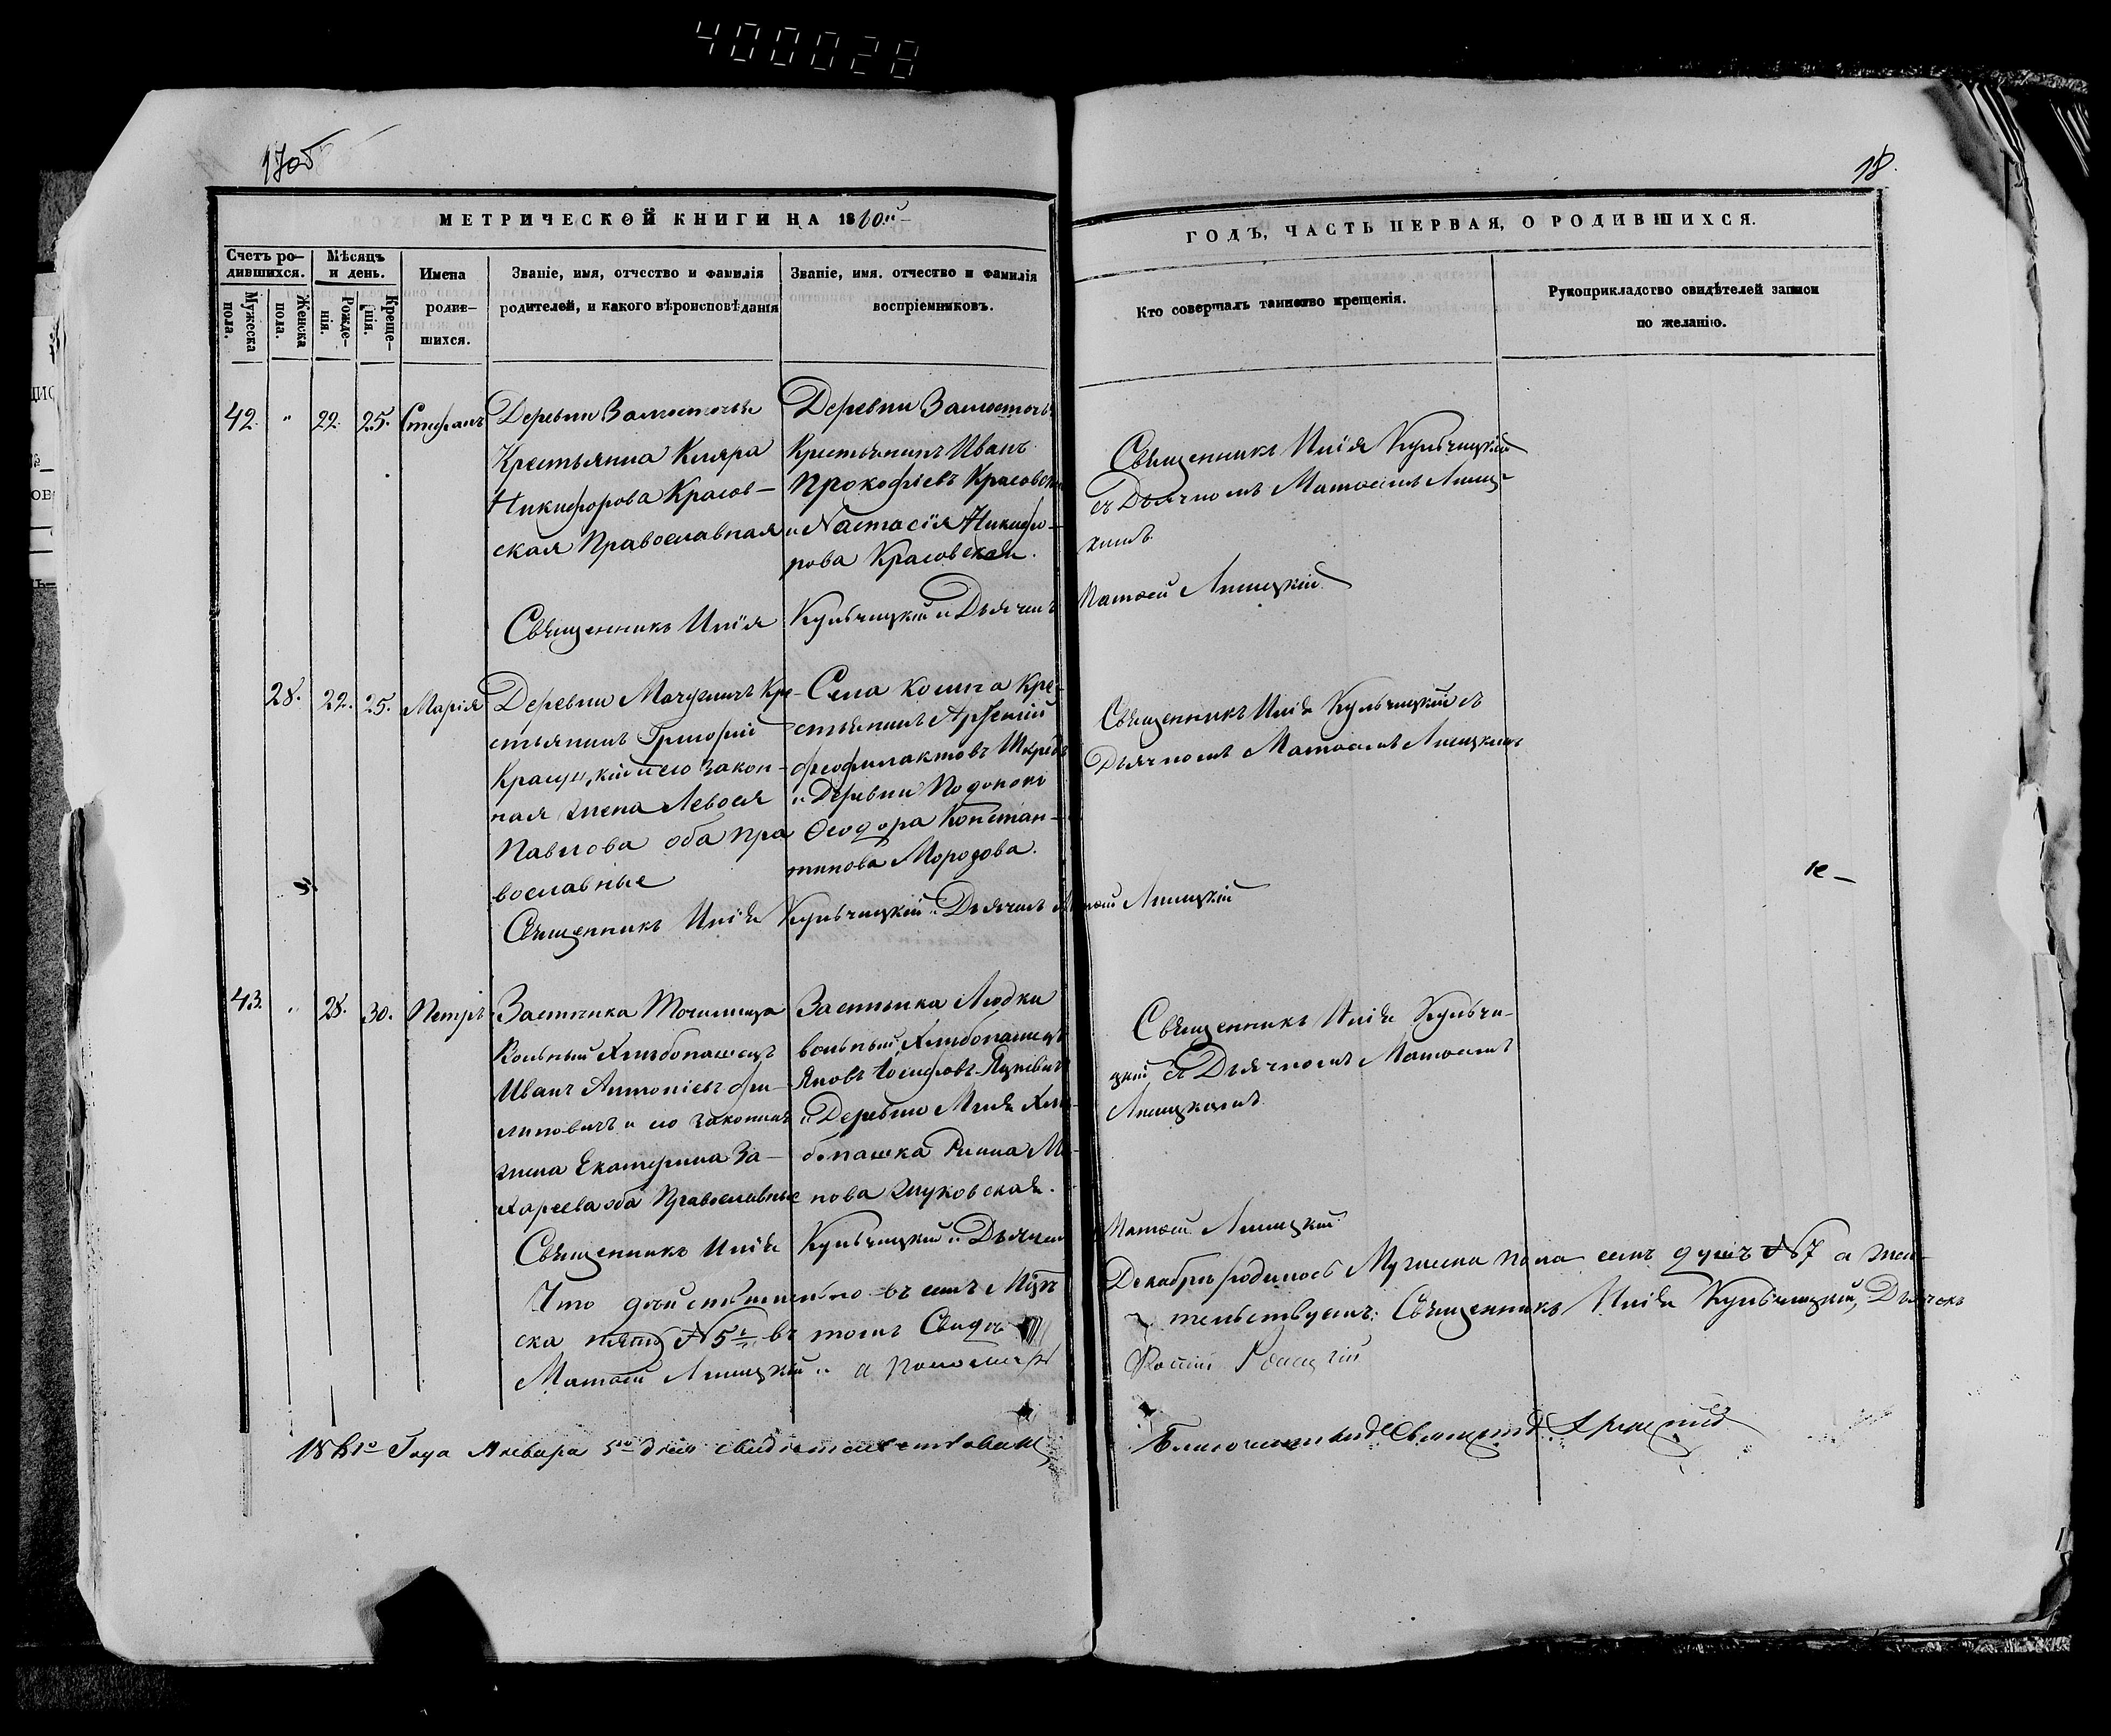 400028
17об
18.
МЕТРИЧЕСКОЙ КНИГИ НА 1860й
ГОДЪ, ЧАСТЬ ПЕРВАЯ, О РОДИВШИХСЯ.
Счетъ ро-
дившихся.
Мужеска
пола.
Женска
пола.
Мѣсяцъ
и день.
Рожде-
нія.
Креще-
нія.
Имена
родив-
шихся.
Званіе, имя, отчество и фамилія
родителей, и какого вѣроисповѣданія
Званіе, имя. отчество и фамилія
воспріемниковъ.
Кто совершалъ таинство крещенія.
Рукоприкладство свидѣтелей записи
по желанію.
42. " 22. 25. Стефанъ
Деревни Замосточья
Крестьянка Кляра
Никифорова Красов-
ская Православная
Деревни Замосточья
Крестьянинъ Иванъ
Прокофіевъ Красовскій
и Настасія Никифо-
рова Красовская.
Священникъ Илія Кульчицкій
съ Дьячкомъ Матѳеемъ Лисиц-
кимъ
Священникъ Илія Кульчицкій и Дьячекъ Матѳей Лисицкій
28. 22. 25. Марія
Деревни Мачулищъ Кре-
стьянинъ Григорій
и его закон-
ная жена
Павлова оба пра
вославные
Села Кре-
стьянинъ Арсеній
Феофилактовъ
и Деревни
Ѳеодора Констан-
тинова Морозова.
Священникъ Илія Кульчицкій съ
Дьячкомъ Матѳеемъ Лисицкимъ
Священникъ Илія Кульчицкій и Дьячекъ Матѳей Лисицкій
43. " 28. 30. Петръ
Застѣнка Точилища
Вольный Хлѣбопашецъ
Иванъ Антоніевъ Фи-
липовичъ и его законная
жена Екатерина За-
хареева оба Православные
Застѣнка Людки
вольный Хлѣбопашецъ
Яковъ Іосифовъ Яцкевичъ
и Деревни Хлѣ-
бопашка
нова Жуковская.
Священникъ Илія Кульчи-
цкій съ Дьячкомъ Матѳеемъ
Лисицкимъ
Священникъ Илія Кульчицкій и Дьячекъ Матѳей Лисицкій
Что дѣйствительно въ семъ Мцѣ Декабрѣ родилось Мужеска пола семъ душъ №7 а жен-
ска пять №5 въ томъ Свидѣтельствуемъ: Священникъ Илія Кульчицкій, Дьячекъ
Матѳей Лисицкій и Пономарь
1861го Года Января 5го дня свидѣтельствовалъ
Благочинный Священникъ